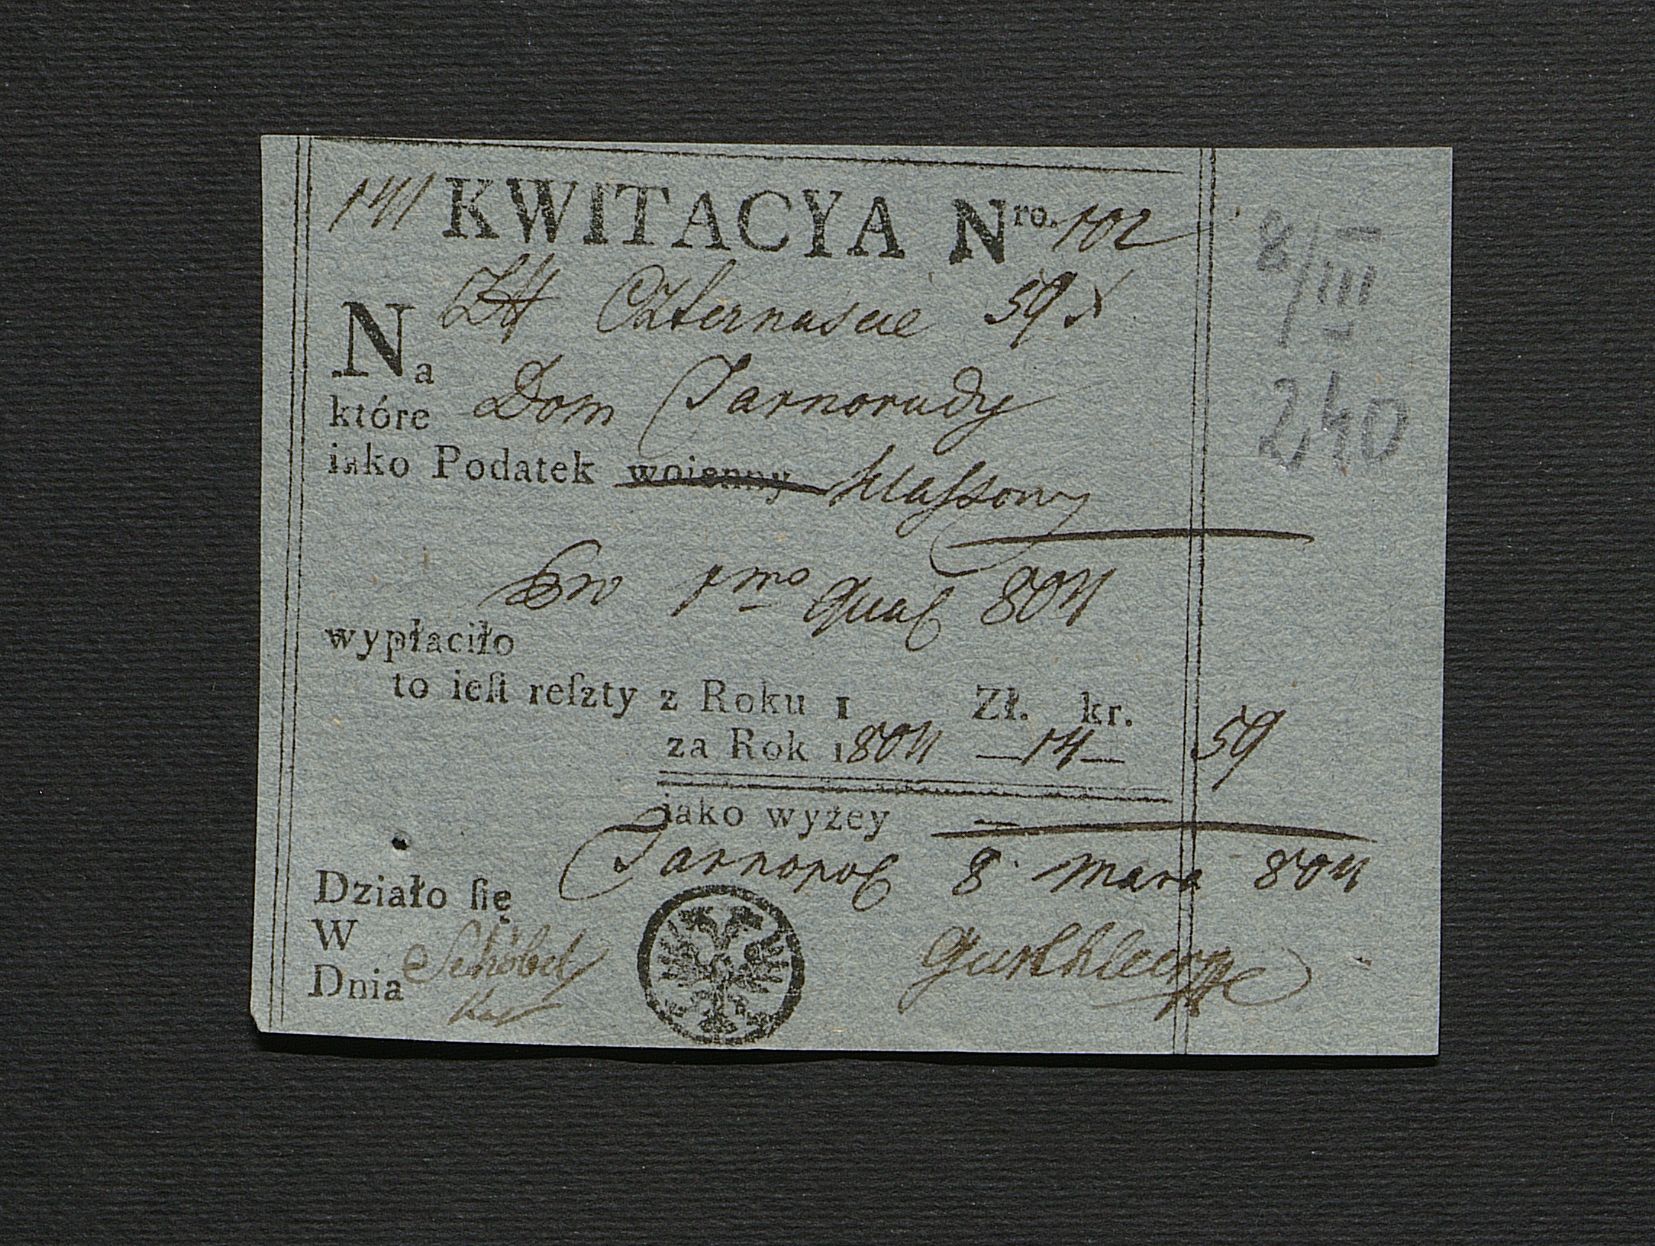 141 KWITACYA Nro. 102
8/III
Na Złł Czternascie 59 x
240
które Dom Tarnorudy
iako Podatek woienny klaſsowy
pro 1mo Qual 804
wypłaciło
to ieſt reſzty z Roku 1 Zł. kr.
za Rok 1804 —14— 59
jako wyżey —
Działo ſię Tarnopol 8. Mara 804
W
Dnia Schöbel